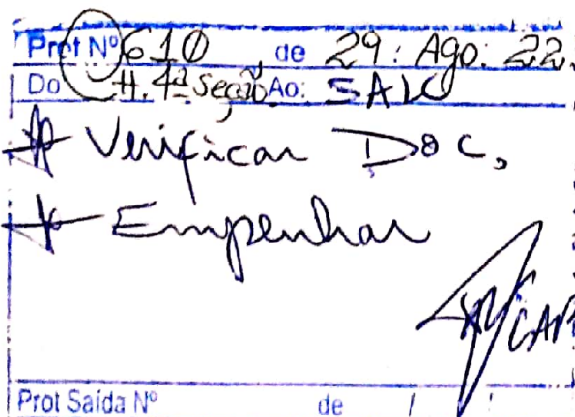 Prot Nº 610 de 29. Ago. 22.
Do H. 4ª Seção Ao: SALC
# Verificar Doc,
# Empenhar
CAP
Prot Saída Nº de / /